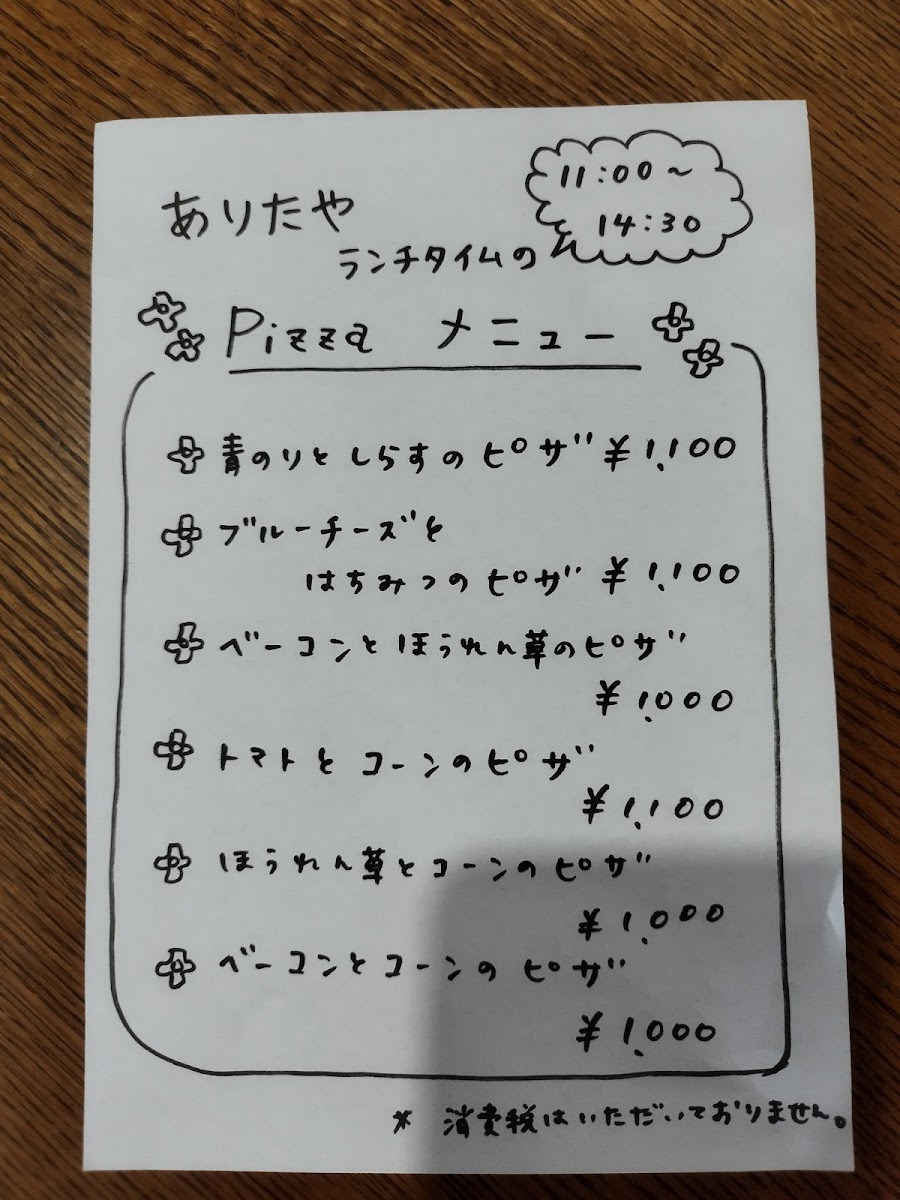 ありたや
11:00~
14:30
ランチタイムの
Pizza メニュー
青のりとしらすのピザ ¥1,100
ブルーチーズと
はちみつのピザ ¥1,100
ベーコンとほうれん草のピザ
¥1,000
トマトとコーンのピザ
¥1,100
ほうれん草とコーンのピザ
¥1,000
ベーコンとコーンのピザ
¥1,000
* 消費税はいただいておりません。